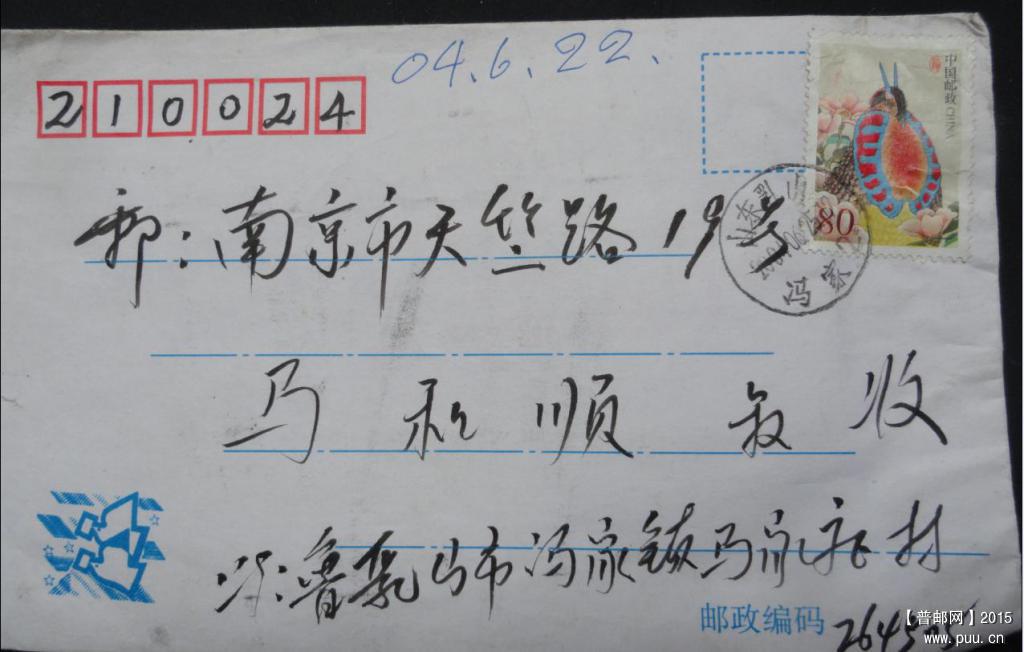 04.6.22.
210024
中国邮政 CHINA
80
山东乳山
冯家
邦:南京市天竺路19号
马 和 顺 叔 收
鲁乳山市冯家镇马家 村
邮政编码 264505
【普邮网】2015
www.puu.cn